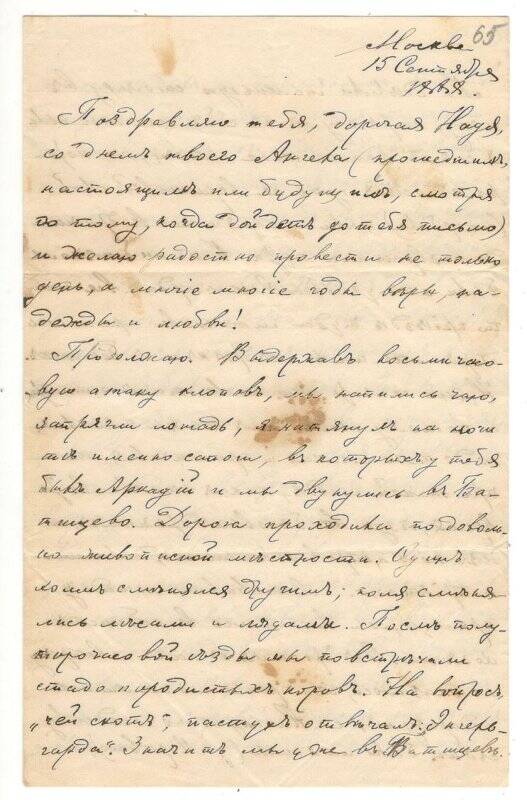 65
Москва
15 Сентября
Поздравляю тебя, дорогая Надя,
со днемъ твоего Ангела (прошедшимъ,
настоящимъ или будущимъ, смотря
по тому, когда дойдетъ до тебя письмо)
и желаю радостно провести не только
день, а многіе многіе годы вѣры, на-
дежды и любви!
Продолжаю. Выдержавъ восьмичасо-
вую атаку клоповъ, мы напились чаю,
запрягли лошадь, я натянулъ на ноги
тѣ именно сапоги, въ которыхъ у тебя
былъ Аркадій и мы двинулись въ Ба-
тищево. Дорога проходила по доволь-
но живописной мѣстности. Одинъ
холмъ смѣнялся другимъ; поля смѣня-
лись лѣсами и лядами. Послѣ полу-
торочасовой ѣзды мы повстрѣчали
стадо породистыхъ коровъ. На вопросъ,
„чей скотъ", пастухъ отвѣчалъ: „Энгель-
гарда". Значитъ мы уже въ Батищевѣ.